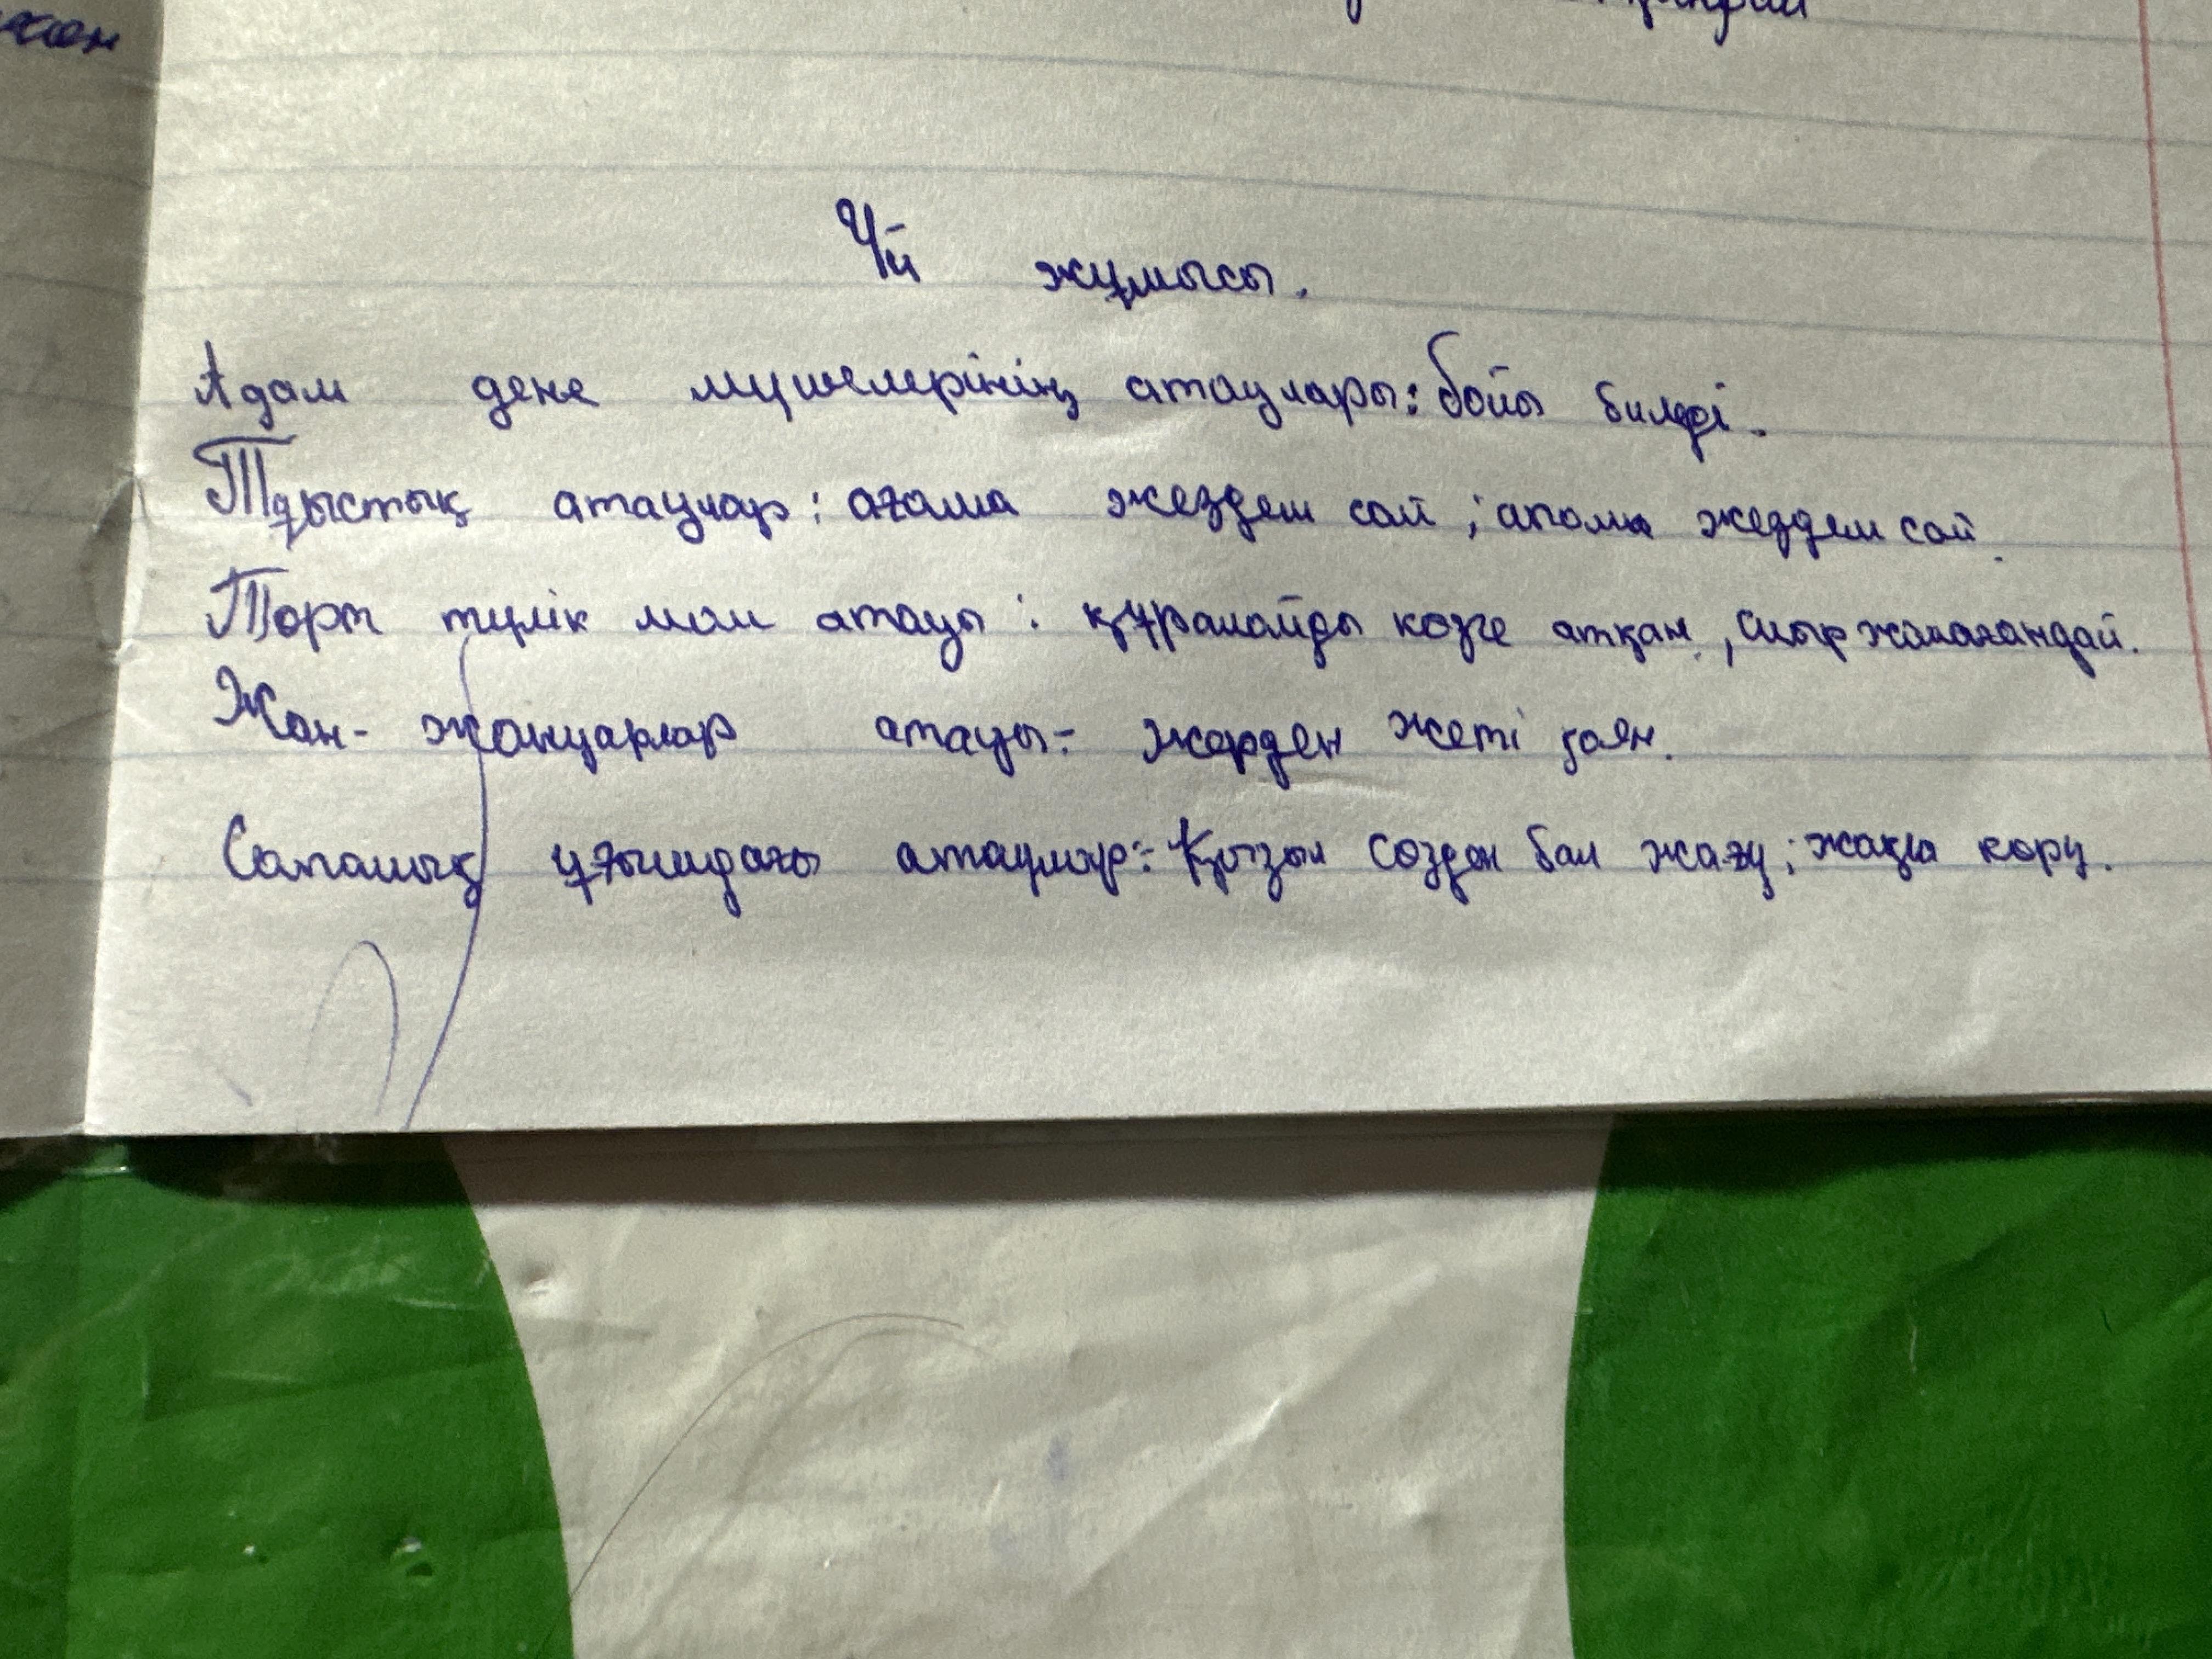 Үй жұмысы.
Адам дене мүшелерінің атаулары: бойы билді.
Туыстық атаулар: ағама жездем сай; апама жездем сай.
Торт түлік мал атауы: құралайды көзге атқан, сиыр жалағандай.
Жан-жануарлар атауы:- жерден жеті қоян.
Сапалық ұғымдағы атаулар:- Қызыл создон бал жазу; жақсы кору.